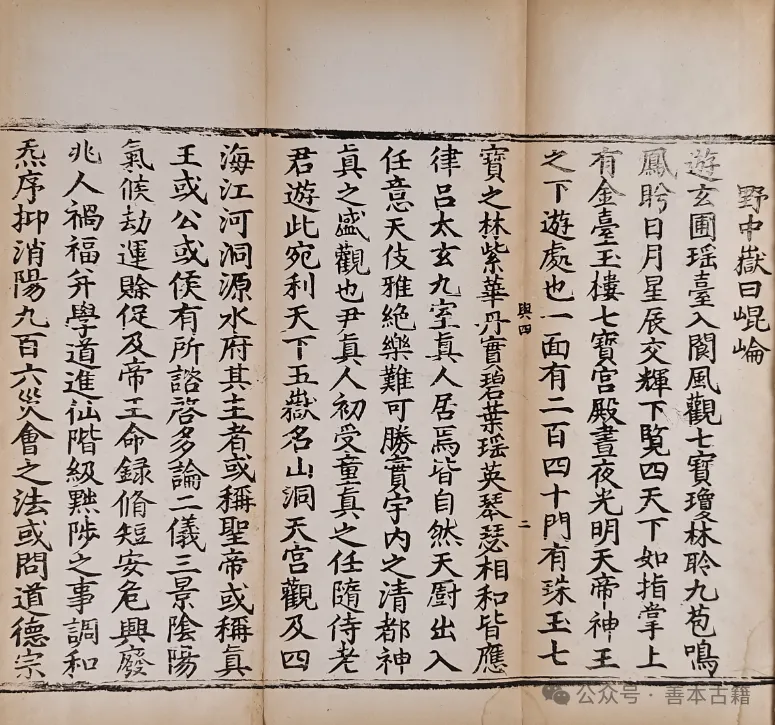 野中嶽曰崐崘
遊玄圃瑶臺入閬風觀七寶瓊林聆九苞鳴
鳳盻日月星辰交輝下覧四天下如指掌上
有金臺玉樓七寶宫殿晝夜光明天帝神王
之下遊處也一面有二百四十門有珠玉七
寶之林紫華丹實碧葉瑶英琴瑟相和皆應
律吕太玄九室真人居焉皆自然天厨出入
任意天伎雅絶樂難可勝實宇内之清都神
真之盛觀也尹真人初受童真之任隨侍老
君遊此宛利天下五嶽名山洞天宫觀及四
海江河洞源水府其主者或稱聖帝或稱真
王或公或侯有所諮啓多論二儀三景隂陽
氣候劫運賖促及帝王命録脩短安危興廢
兆人禍福弁學道進仙階級黜陟之事調和
炁序抑消陽九百六災會之法或問道德宗
與四
二
公众号·善本古籍